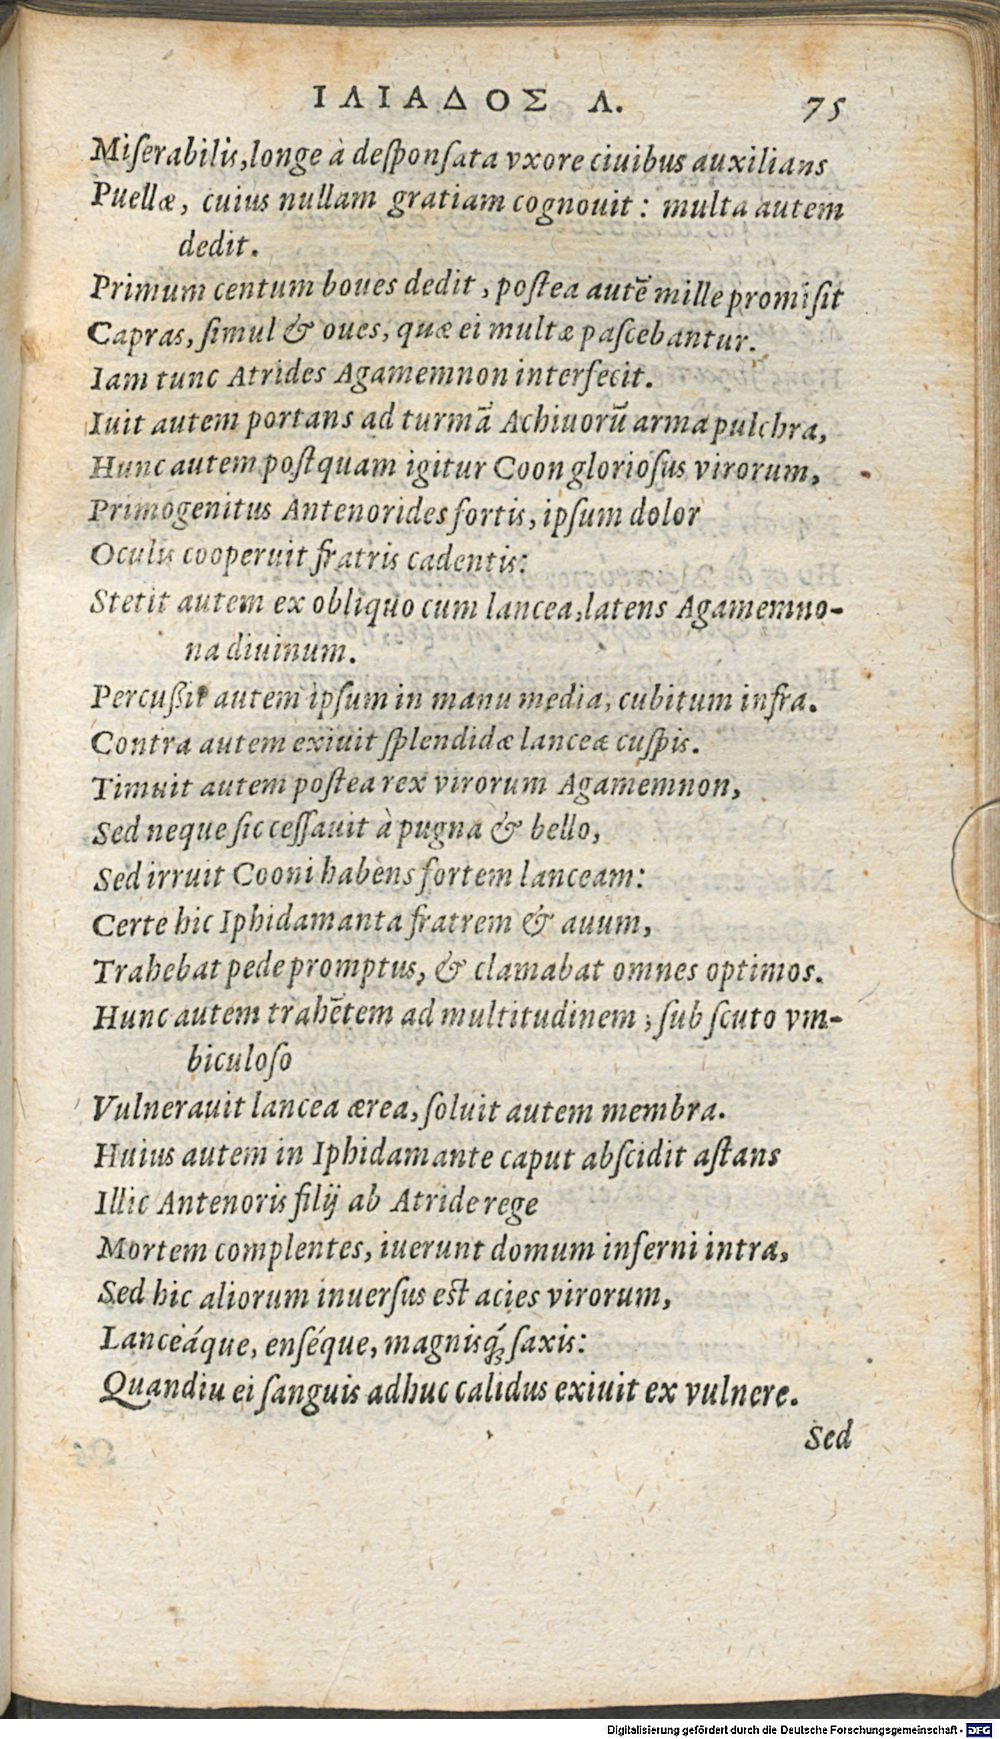 ΙΛΙΑΔΟΣ Λ. 75
Miſerabilis, longe à deſponſata vxore ciuibus auxilians
Puellæ, cuius nullam gratiam cognouit: multa autem
dedit.
Primum centum boues dedit, poſtea autē mille promiſit
Capras, ſimul & oues, quæ ei multæ paſcebantur.
Iam tunc Atrides Agamemnon interfecit.
Iuit autem portans ad turmā Achiuorū arma pulchra,
Hunc autem poſtquam igitur Coon glorioſus virorum,
Primogenitus Antenorides fortis, ipſum dolor
Oculis cooperuit fratris cadentis:
Stetit autem ex obliquo cum lancea, latens Agamemno-
na diuinum.
Percußit autem ipſum in manu media, cubitum infra.
Contra autem exiuit ſplendidæ lanceæ cuſpis.
Timuit autem poſtea rex virorum Agamemnon,
Sed neque ſic ceſſauit à pugna & bello,
Sed irruit Cooni habens fortem lanceam:
Certe hic Iphidamanta fratrem & auum,
Trahebat pede promptus, & clamabat omnes optimos.
Hunc autem trahētem ad multitudinem, ſub ſcuto vm-
biculoſo
Vulnerauit lancea ærea, ſoluit autem membra.
Huius autem in Iphidamante caput abſcidit aſtans
Illic Antenoris filij ab Atride rege
Mortem complentes, iuerunt domum inferni intra,
Sed hic aliorum inuerſus eſt acies virorum,
Lanceáque, enſéque, magniſq́; ſaxis:
Quandiu ei ſanguis adhuc calidus exiuit ex vulnere.
Sed
Digitalisierung gefördert durch die Deutsche Forschungsgemeinschaft - DFG